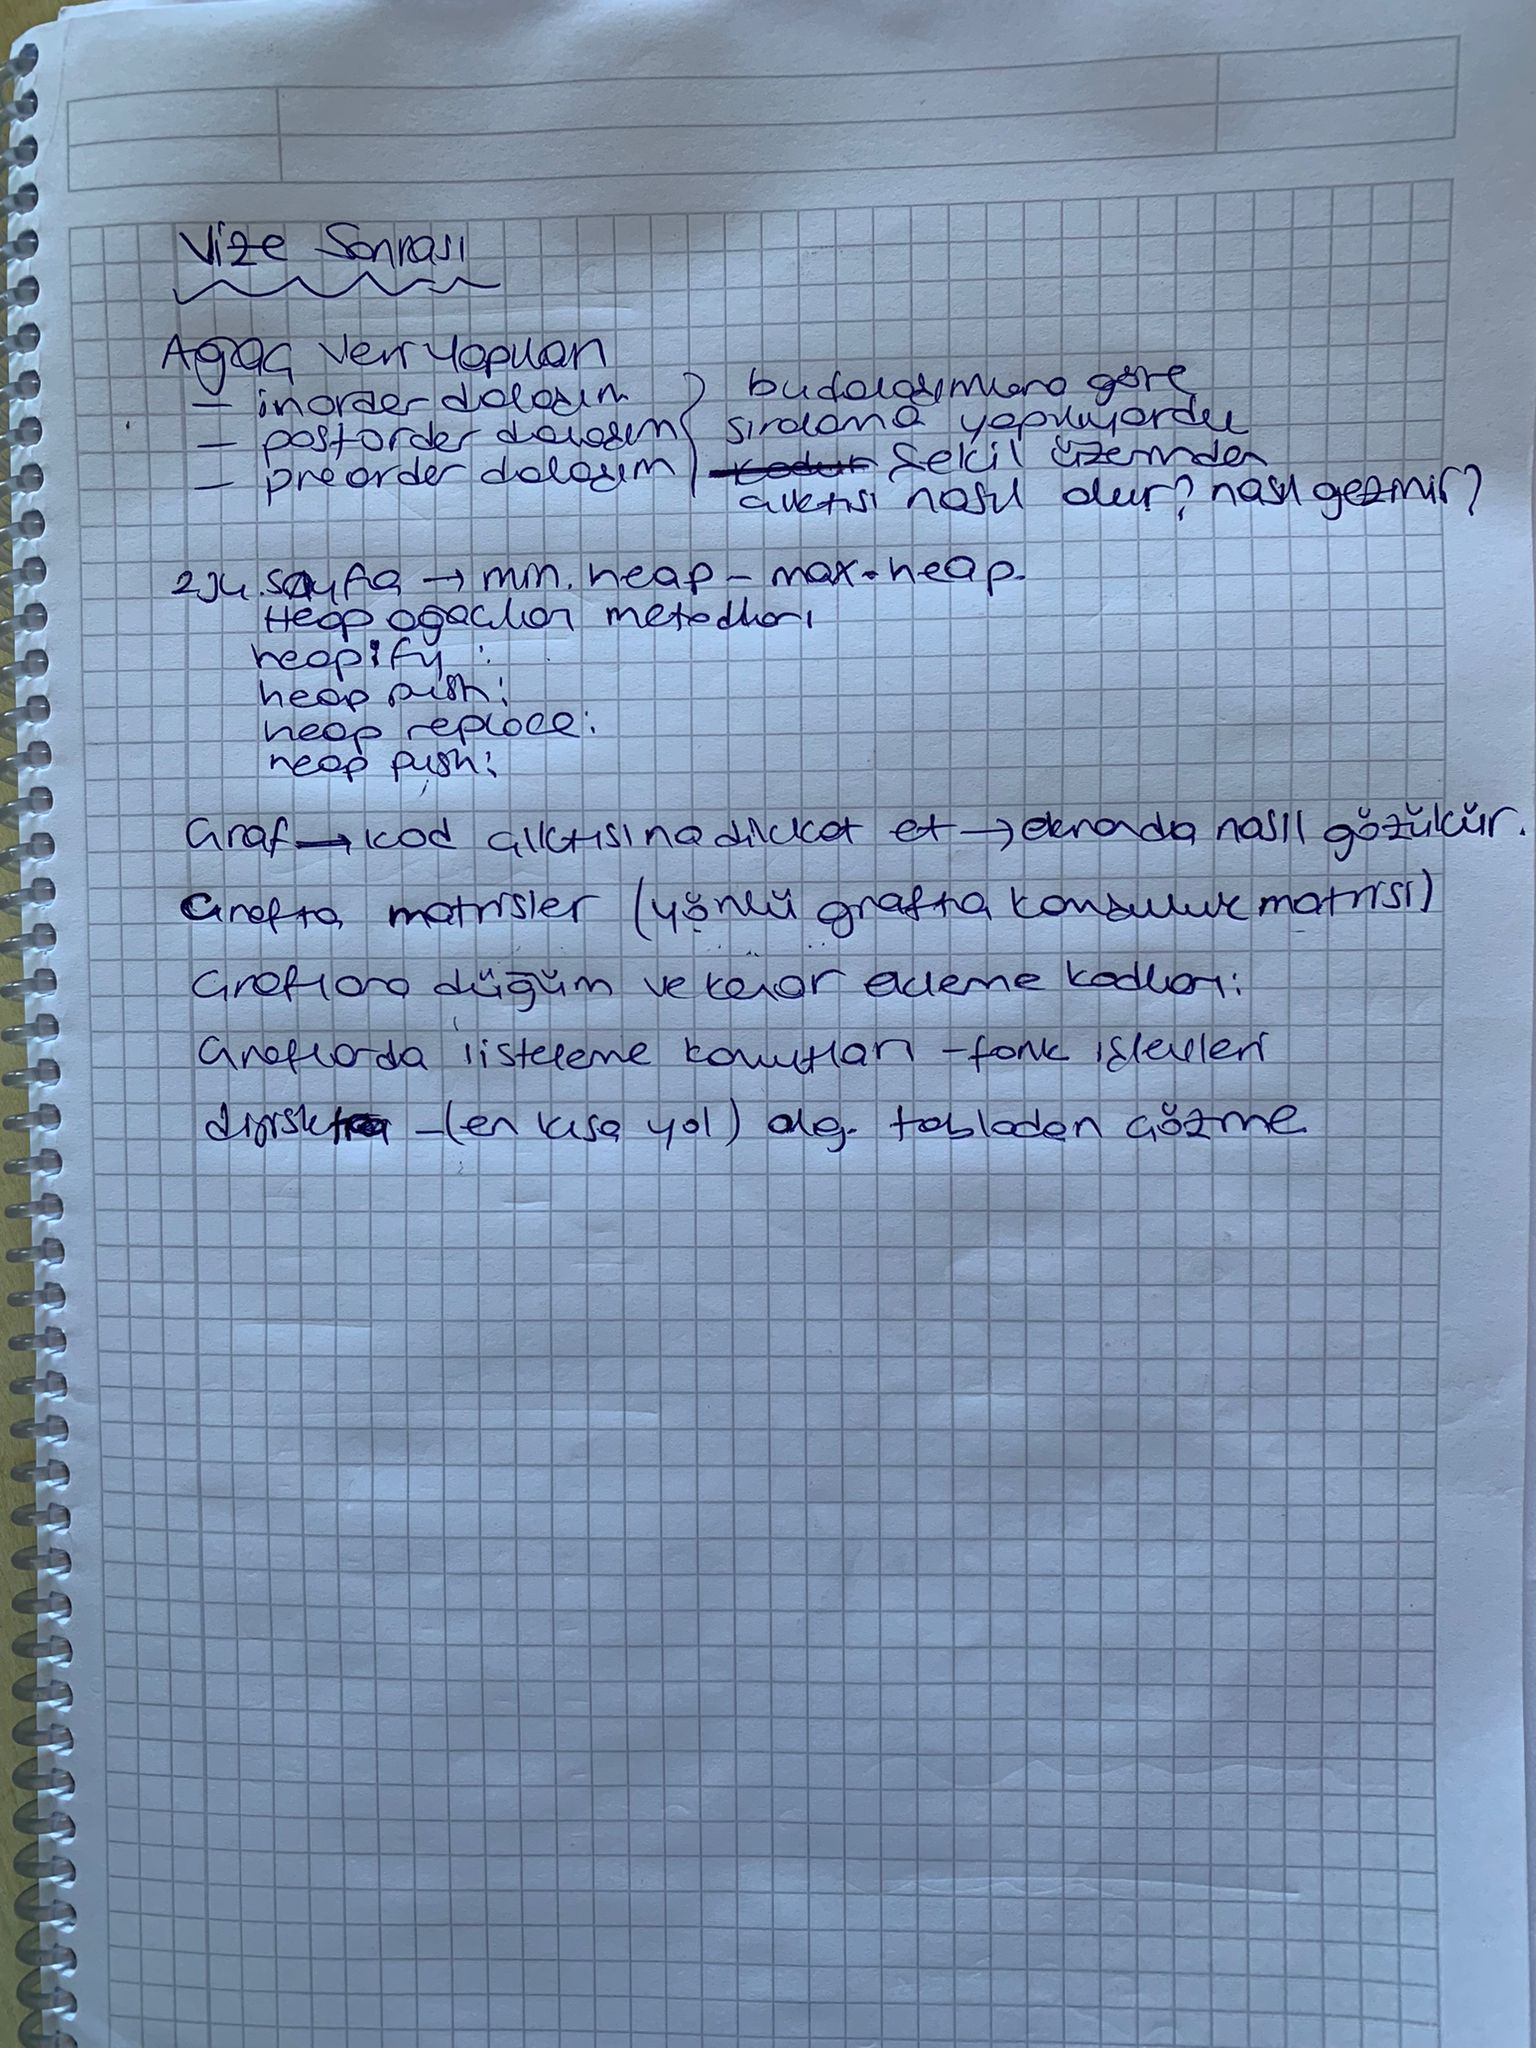 Vize Sonrası
Ağaç Veri Yapıları
- inorder dolaşım
- postorder dolaşım
- preorder dolaşım
bu dolaşımlara göre
sıralama yapılıyordu
şekil üzerinden
çıktısı nasıl olur? nasıl gezinir?
sayfa → min. heap - max. heap.
Heap ağaçları metodları
heapify :
heap push:
heap replace:
heap push:
Graf → kod çıktısına dikkat et → ekranda nasıl gözükür.
Grafta matrisler (yönlü grafta komşuluk matrisi)
Graflara düğüm ve kenar ekleme kodları:
Graflarda listeleme komutları - fonk işlevleri
- (en kısa yol) alg. tablodan çözme